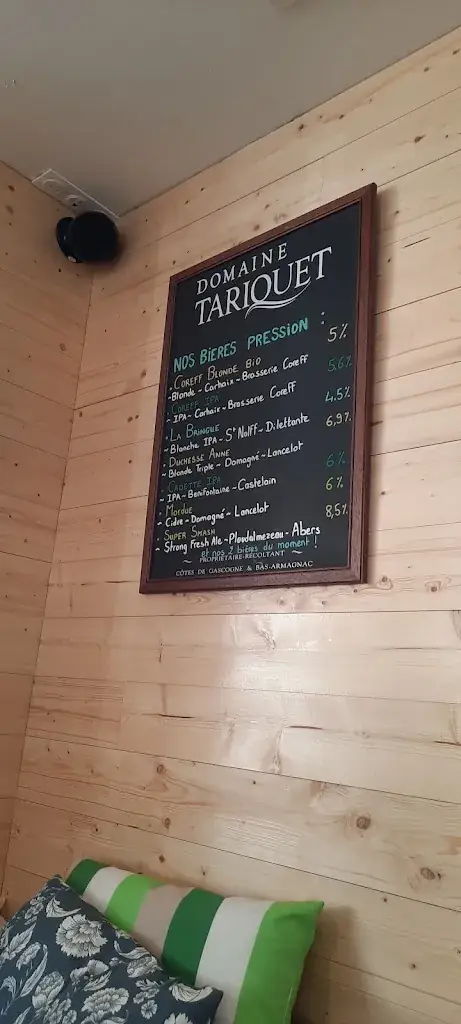 DOMAINE
TARIQUET
NOS BIÈRES PRESSION :
• COREFF BLONDE BIO 5%
- Blonde - Carhaix - Brasserie Coreff
• COREFF IPA 5.6%
- IPA - Carhaix - Brasserie Coreff
• LA BRINGUE 4.5%
- Blanche IPA - St Nolff - Dilettante
• DUCHESSE ANNE 6,9%
- Blonde Triple - Domagné - Lancelot
• CAGETTE IPA 6%
- IPA - Bénifontaine - Castelain
• MORDUE 6%
- Cidre - Domagné - Lancelot
• SUPER SMASH 8,5%
- Strong Fresh Ale - Ploudalmezeau - Abers
et nos 2 bières du moment !
PROPRIÉTAIRE-RÉCOLTANT
CÔTES DE GASCOGNE & BAS-ARMAGNAC